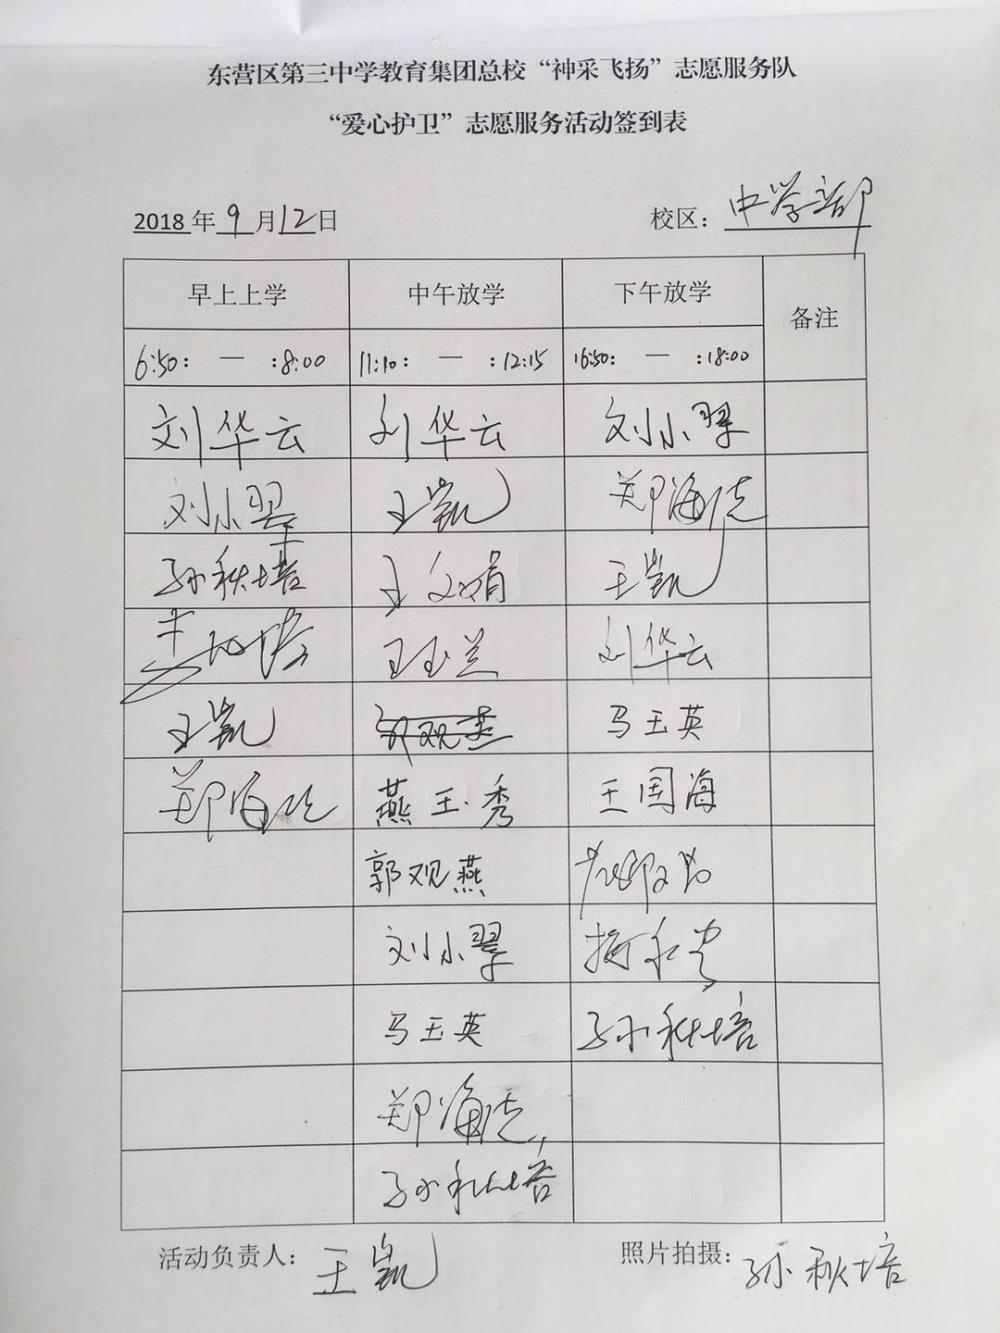 东营区第三中学教育集团总校“神采飞扬”志愿服务队
“爱心护卫”志愿服务活动签到表
2018 年 9 月 12 日 校区： 中学部
早上上学 中午放学 下午放学 备注
6:50： — ：8:00 11:10： — ：12:15 16:50： — ：18:00
刘华云 刘华云 刘小翠
刘小翠 王凯 郑海
孙秋培 王文娟 王凯
王玉兰 刘华云
王凯 郭观燕 马玉英
郑海 燕玉秀 王国海
郭观燕
刘小翠
马玉英 孙秋培
郑海
孙秋培
活动负责人： 王凯 照片拍摄： 孙秋培